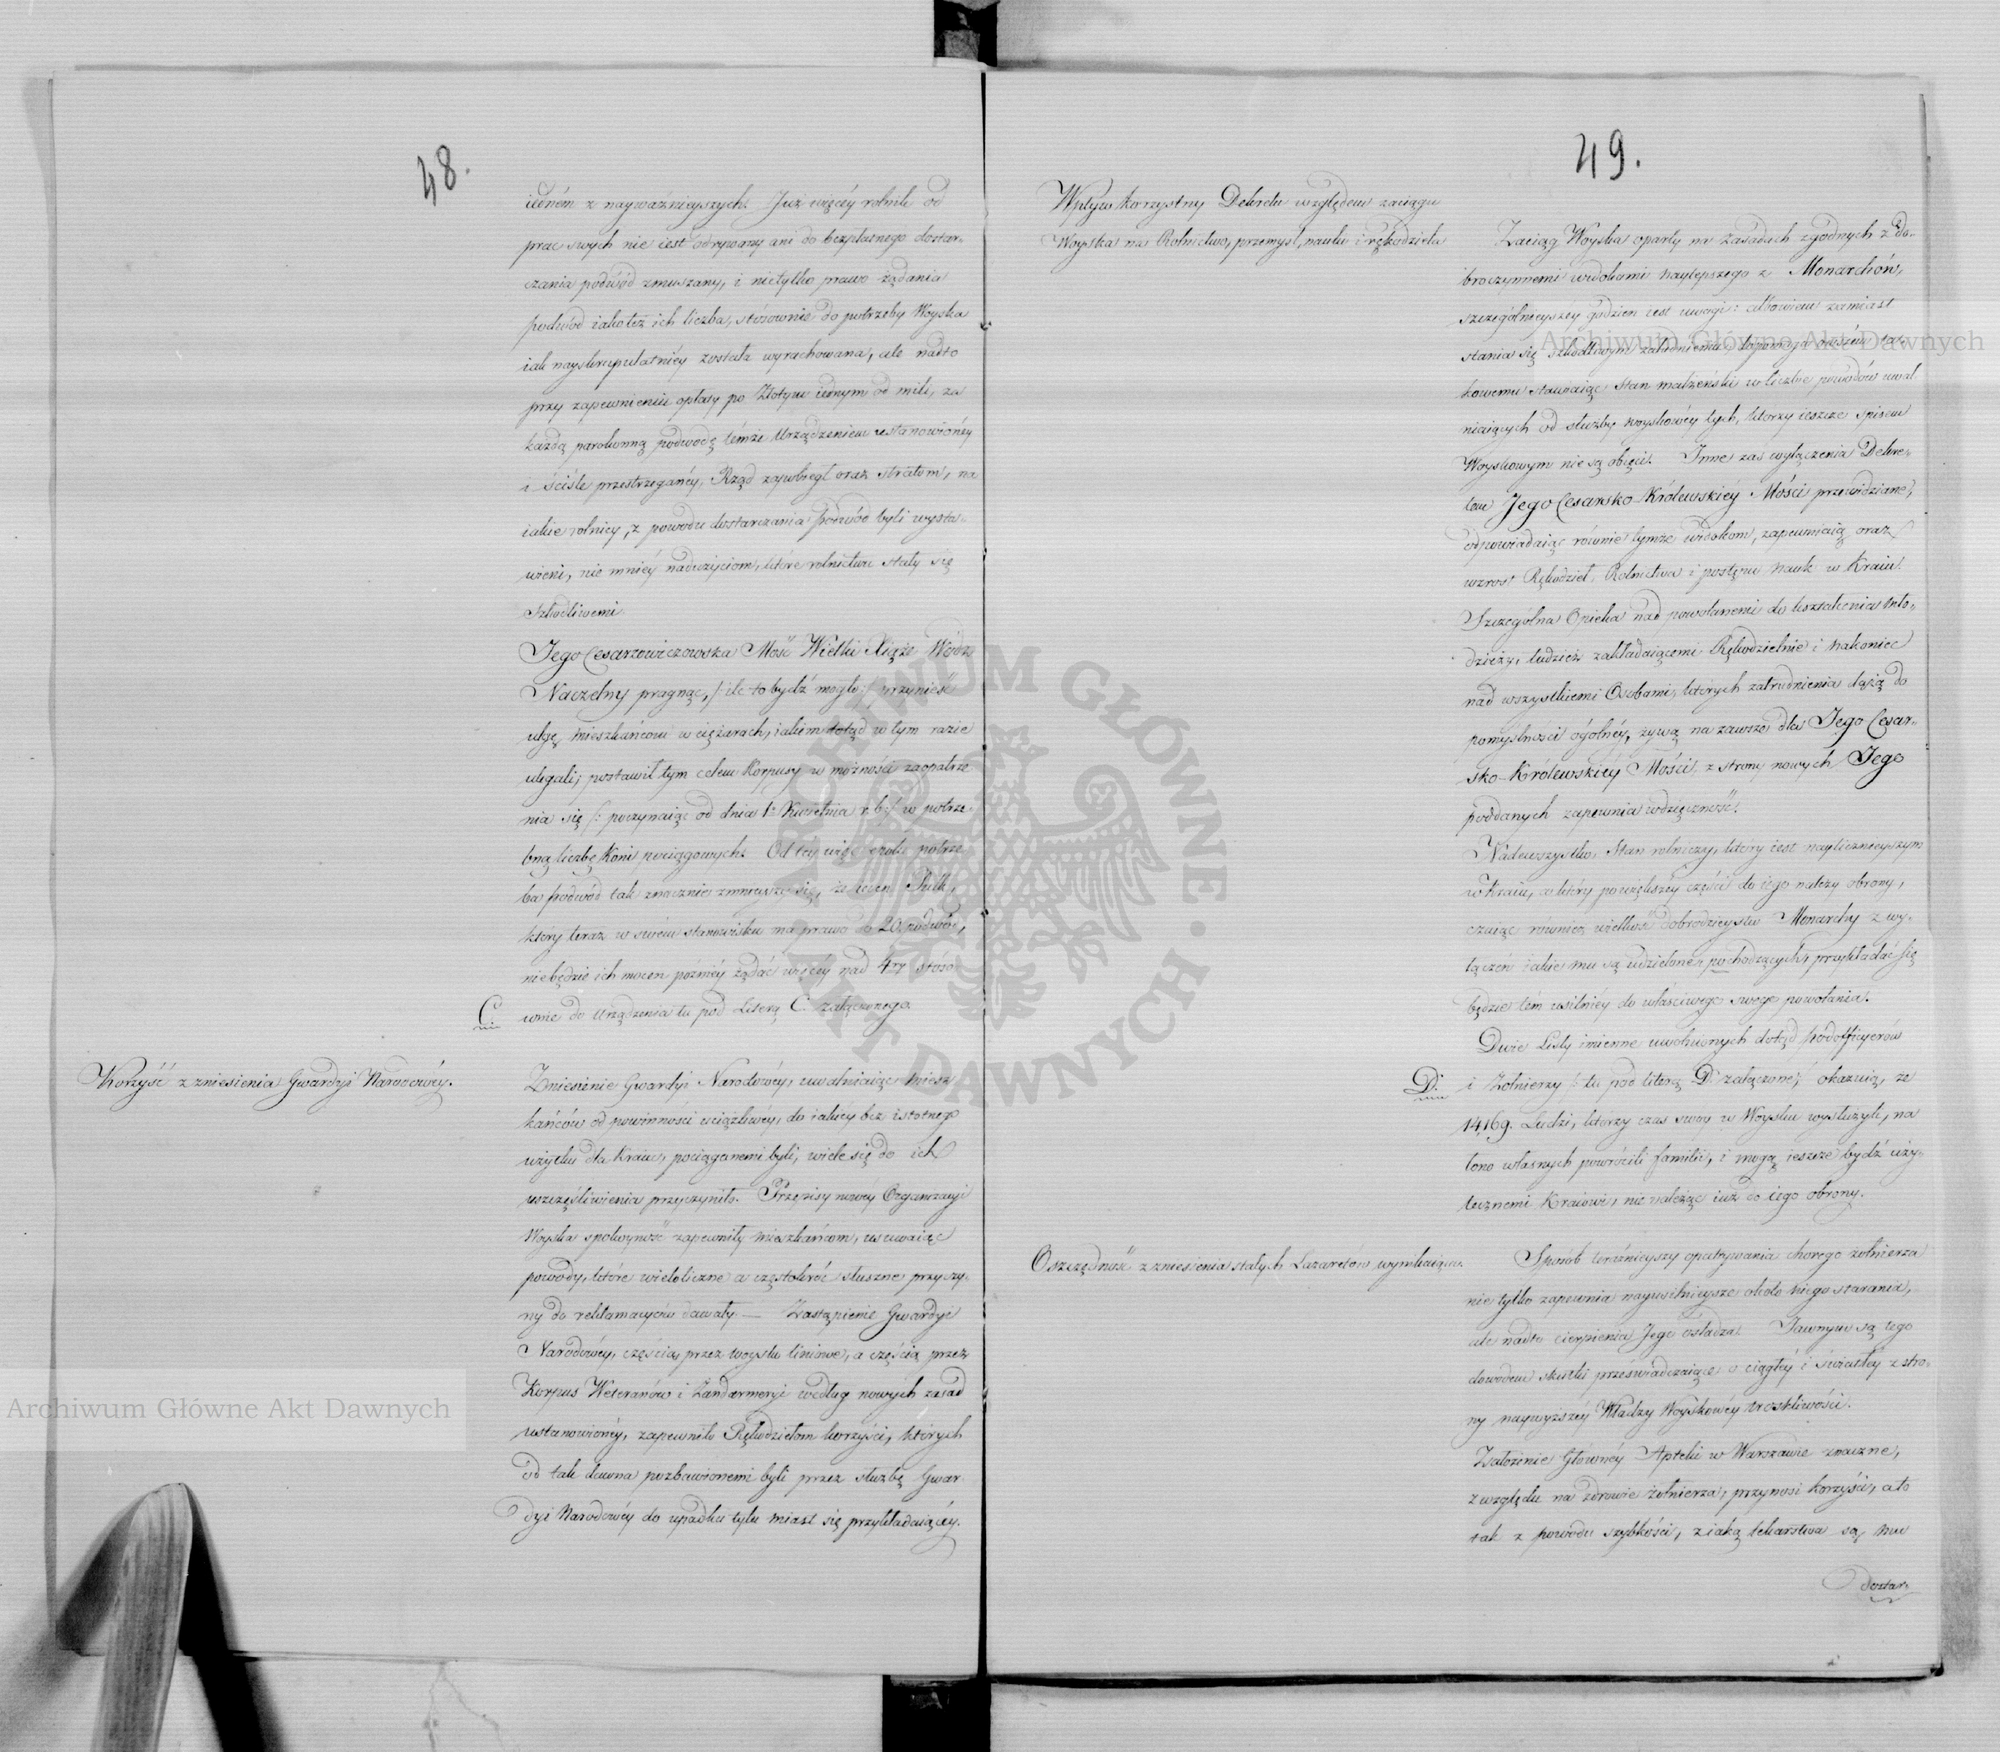 48.
iedném z nayważnieyszych. Już więcéy rolnik od
prac swych nie iest odrywany ani do bezpłatnego dostar-
czania podwód zmuszany, i nietylko prawo żądania
podwód iakoteż ich liczba, stósownie do potrzeby Woyska
iak nayskrupulatniéy została wyrachowana, ale nadto
przy zapewnieniu opłaty po Złotym iednym od mili, za
każdą parokonną podwodę témże Urządzeniem ustanowionéy
i ściśle przestrzeganéy, Rząd zapobiegł oraz stratom, na
iakie rolnicy, z powodu dostarczania podwód byli wysta-
wieni, nie mniéy nadużyciom, które rolnictwu stały się
szkodliwemi.
Jego Cesarzewiczowska Mość Wielki Xiąże Wódz
Naczelny pragnąc, /: ile to bydź mogło :/ przynieść
ulgę mieszkańcom w ciężarach, iakim dotąd w tym razie
ulegali; postawił tym celem Korpusy w możności zaopatrze-
nia się /: poczynaiąc od dnia 1º Kwietnia r. b. :/ w potrze-
bną liczbę Koni pociągowych. Od téy więc epoki potrze-
ba podwód tak znacznie zmnieyszy się, że ieden Pułk,
który teraz w swém stanowisku ma prawo do 20. podwód,
niebędzie ich mocen pozniéy żądać więcéy nad 4ry stóso-
C. wnie do Urządzenia tu pod Literą C. załączonego.
Korzyść z zniesienia Gwardyi Narodowéy.
Zniesienie Gwardyi Narodowéy, uwalniaiąc miesz-
kańców od powinności uciążliwéy, do iakiéy bez istotnego
użytku dla Kraiu, pociąganemi byli, wiele się do ich
uszczęśliwienia przyczyniło. Przepisy nowéy Organizacyi
Woyska spokoyność zapewniły mieszkańcom, usuwaiąc
powody, które wieloliczne a częstokroć słuszne przyczy-
ny do reklamacyów dawały. — Zastąpienie Gwardyi
Narodowéy, częścią przez woysko liniowe, a częścią przez
Korpus Weteranów i Żandarmeryi według nowych zasad
ustanowionéy, zapewniło Rękodziełom korzyści, których
od tak dawna pozbawionemi byli przez służbę Gwar-
dyi Narodowéy do upadku tylu miast się przykładaiącéy.
49.
Wpływ korzystny Dekretu względem zaciągu
Woyska na Rolnictwo, przemysł, nauki i rękodzieła
Zaciąg Woyska oparty na zasadach zgodnych z do-
broczynnemi widokami naylepszego z Monarchów,
szczególnieyszéy godzien iest uwagi: albowiem zamiast
stania się szkodliwym zaludnieniu, dopomaga owszem ta-
kowemu stawiaiąc stan małżeński w liczbie powodów uwal-
niaiących od służby woyskowéy tych, którzy ieszcze spisem
Woyskowym nie są obięci. Inne zaś wyłączenia Dekre-
tem Jego Cesarsko-Królewskiéy Mości przewidziane,
odpowiadaiąc równie tymże widokom, zapewniaią oraz
wzrost Rękodzieł, Rolnictwa i postępu Nauk w Kraiu.
Szczególna Opieka nad powołanemi do kształcenia mło-
dzieży, tudzież zakładaiącemi Rękodzielnie i nakoniec
nad wszystkiemi Osobami, których zatrudnienia dążą do
pomyślności ogólnéy, żywą na zawsze dla Jego Cesar-
sko-Królewskiéy Mości, z strony nowych Jego
poddanych zapewnia wdzięczność.
Nadewszystko, Stan rolniczy, który iest nayliczniejszym
w Kraiu, a który po większéy części do iego należy obrony,
czuiąc również wielkość dobrodzieystw Monarchy z wy-
łączeń iakie mu są udzielone pochodzących, przykładać się
będzie tém usilniéy do właściwego swego powołania.
Dwie Listy imienne uwolnionych dotąd Podofficyerów
D. i Żołnierzy /: tu pod literą D. załączone :/ okazuią, że
14,169. Ludzi, którzy czas swóy w Woysku wysłużyli, na
łono własnych powrócili familii, i mogą ieszcze bydź uży-
tecznemi Kraiowi, nie należąc iuż do iego obrony.
Oszczędność z zniesienia stałych Lazaretów wynikaiąca.
Sposób teraźnieyszy opatrywania chorego żołnierza
nie tylko zapewnia nayusilnieysze około niego starania,
ale nadto cierpienia Jego osładza. Jawnym są tego
dowodem skutki przeświadczaiące o ciągłéy i światłéy z stro-
ny naywyższéy Władzy Woyskowéy troskliwości.
Założenie Głównéy Apteki w Warszawie znaczne,
z względu na zdrowie żołnierza, przynosi korzyści, a to
tak z powodu szybkości, z iaką lekarstwa są mu
dostar-
Archiwum Główne Akt Dawnych
Archiwum Główne Akt Dawnych
ARCHIWUM GŁÓWNE · AKT DAWNYCH ·